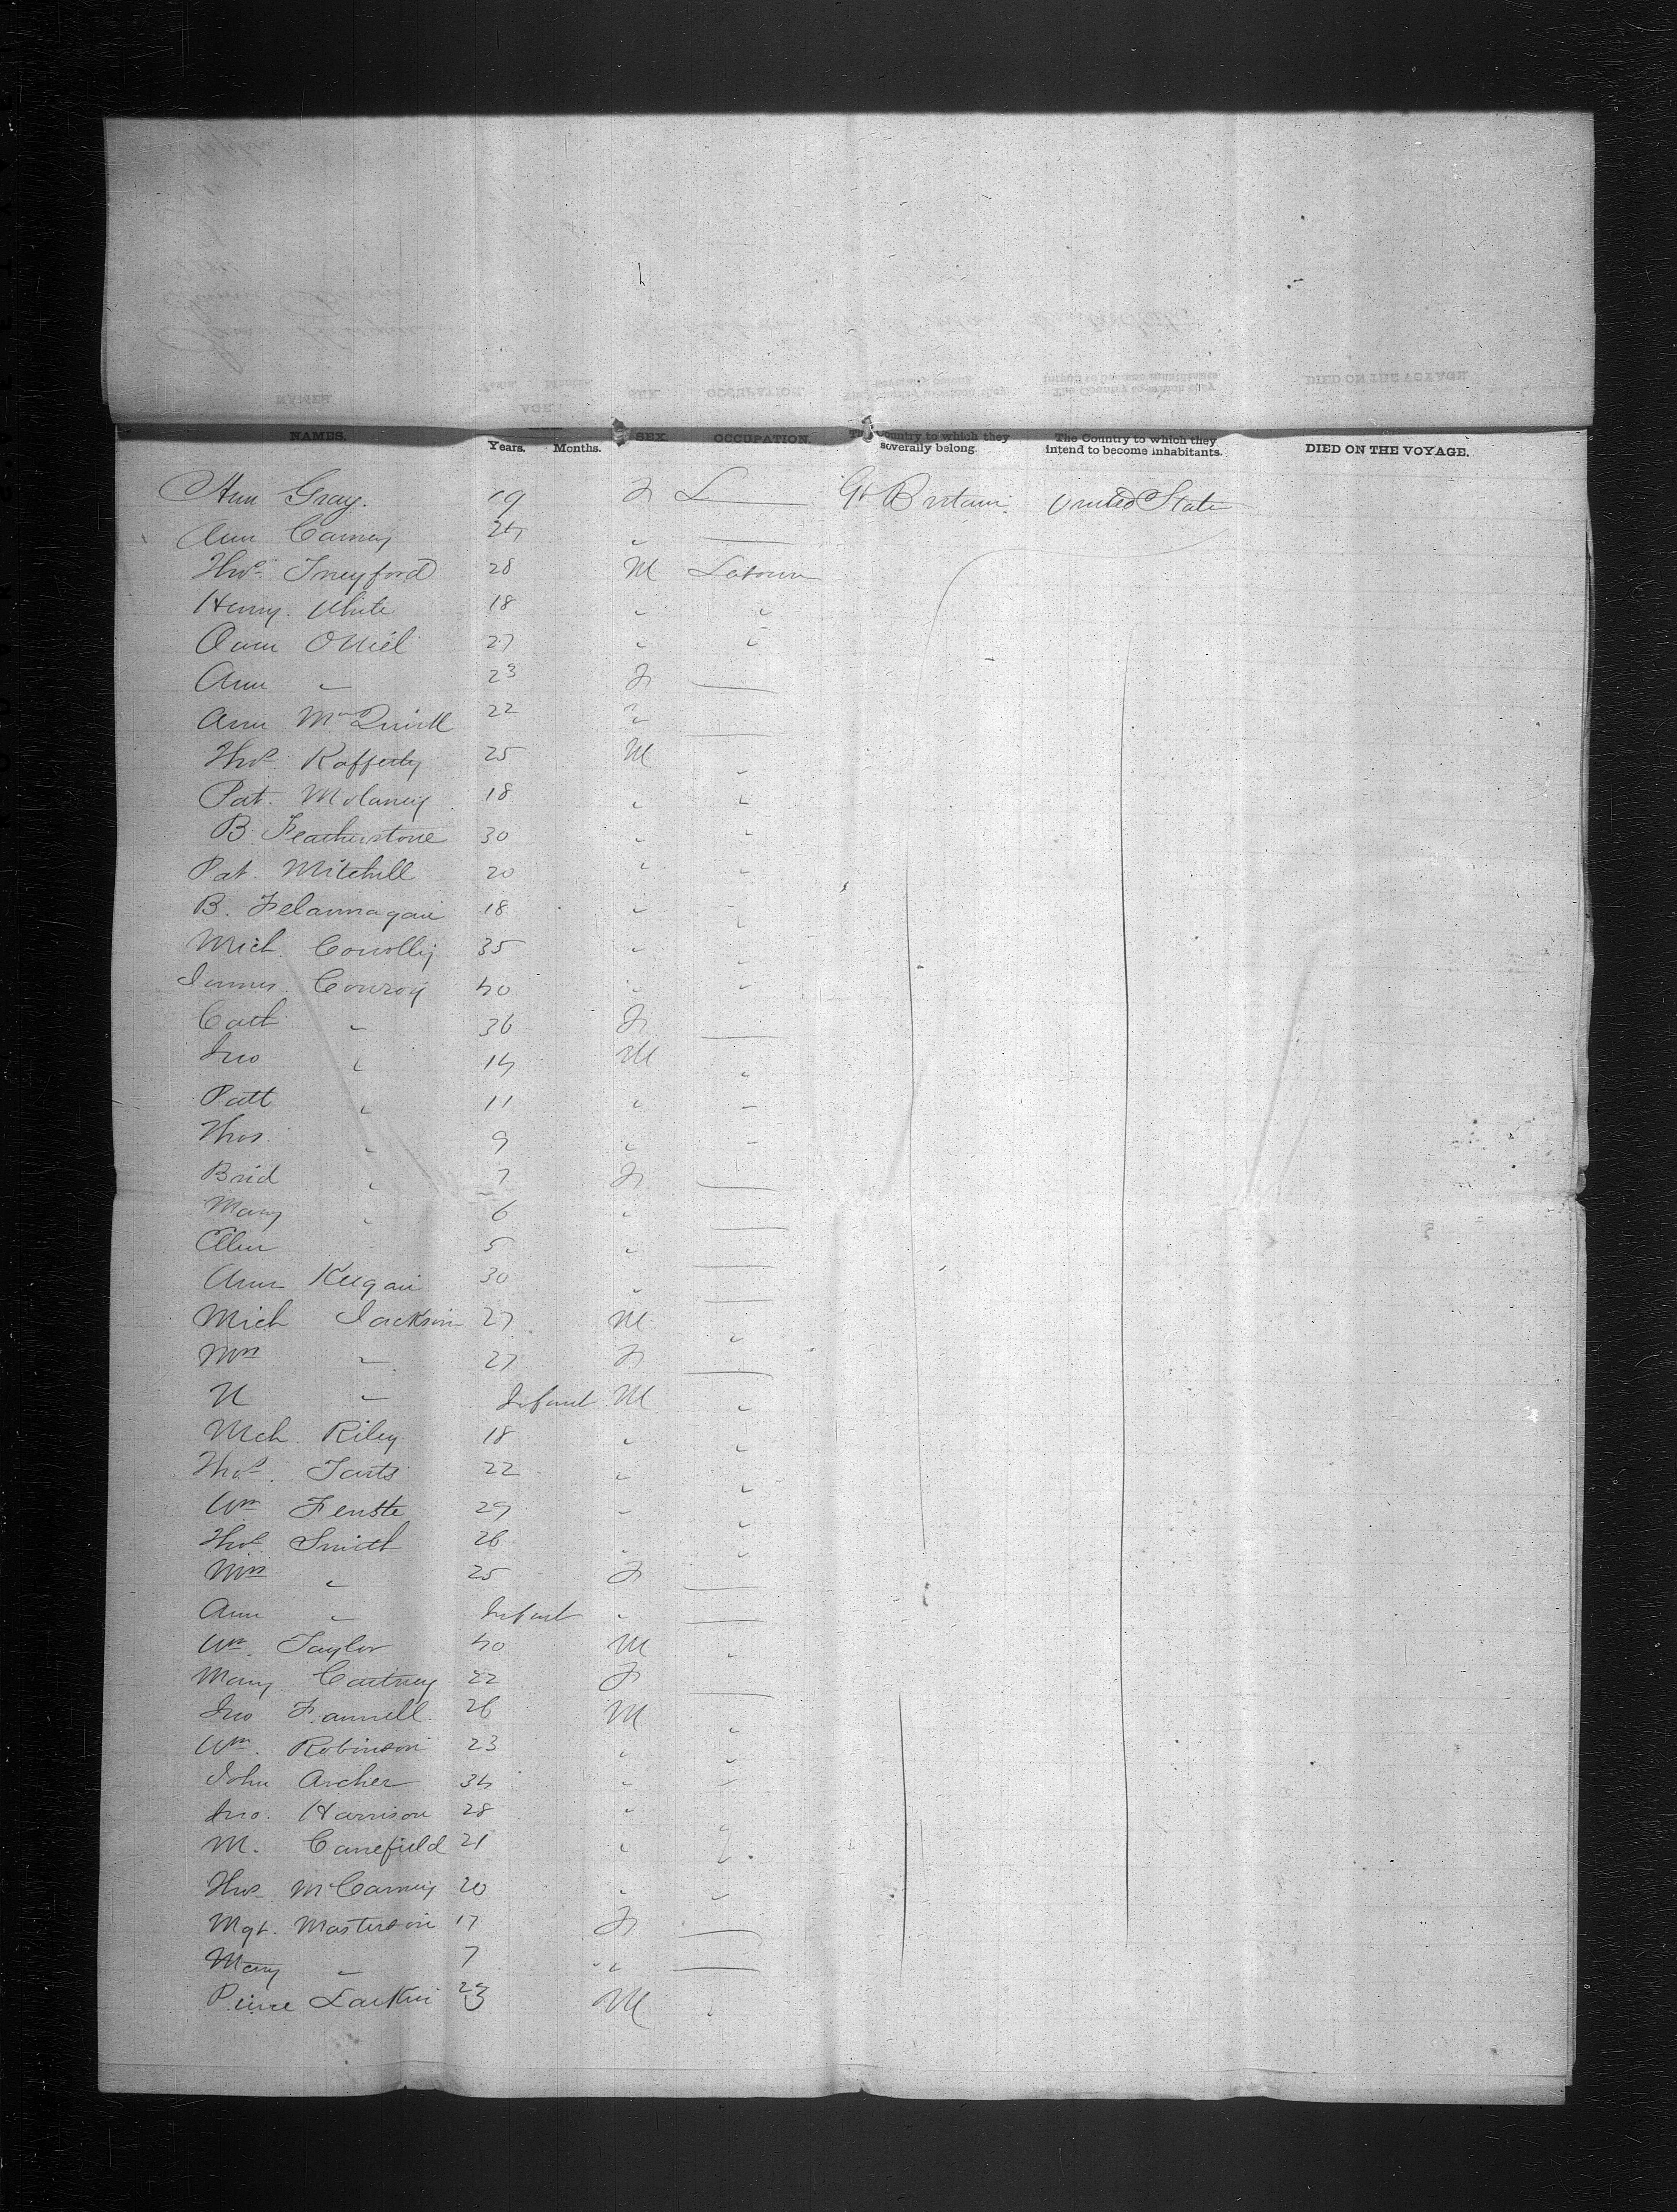 NAMES. Years. Months. SEX. OCCUPATION. The Country to which they severally belong. The Country to which they intend to become inhabitants. DIED ON THE VOYAGE.
Ann Gray. 19 F L Gt Britain. United State
Ann Carney 24 "
Thos. 28 M Labourer
Henry. White 18 " "
Owen ONiel 27 " "
Ann " 23 F
Ann 22 "
Thos. Rafferty 25 M "
Pat. Molaney 18 " "
B. Featherstone 30 " "
Pat. Mitchell 20 " "
B. Felannagan 18 " "
Mich. Conolly 35 " "
James Conroy 40 " "
Cath " 36 F
Jno " 14 M "
Patt " 11 " "
Thos. " 9 " "
Brid " 7 F
Mary " 6 "
Ellen 5 "
Ann Keegan 30 "
Mich Jackson 27 M "
Mrs " 27 F
N " Infant M "
Mch Riley 18 " "
Thos. 22 " "
Wm 29 " "
Thos. Smith 26 " "
Mrs " 25 F
Ann " Infant "
Wm. Taylor 40 M "
Mary Cartney 22 F
Jno Fannell. 26 M "
Wm. Robinson 23 " "
John Archer 34 " "
Jno. Harrison 28 " "
M. Canefield 21 " "
Thos McCarney 20 " "
Mgt. Masterson 17 F
Mary " 7 "
Pierce Larkin M "